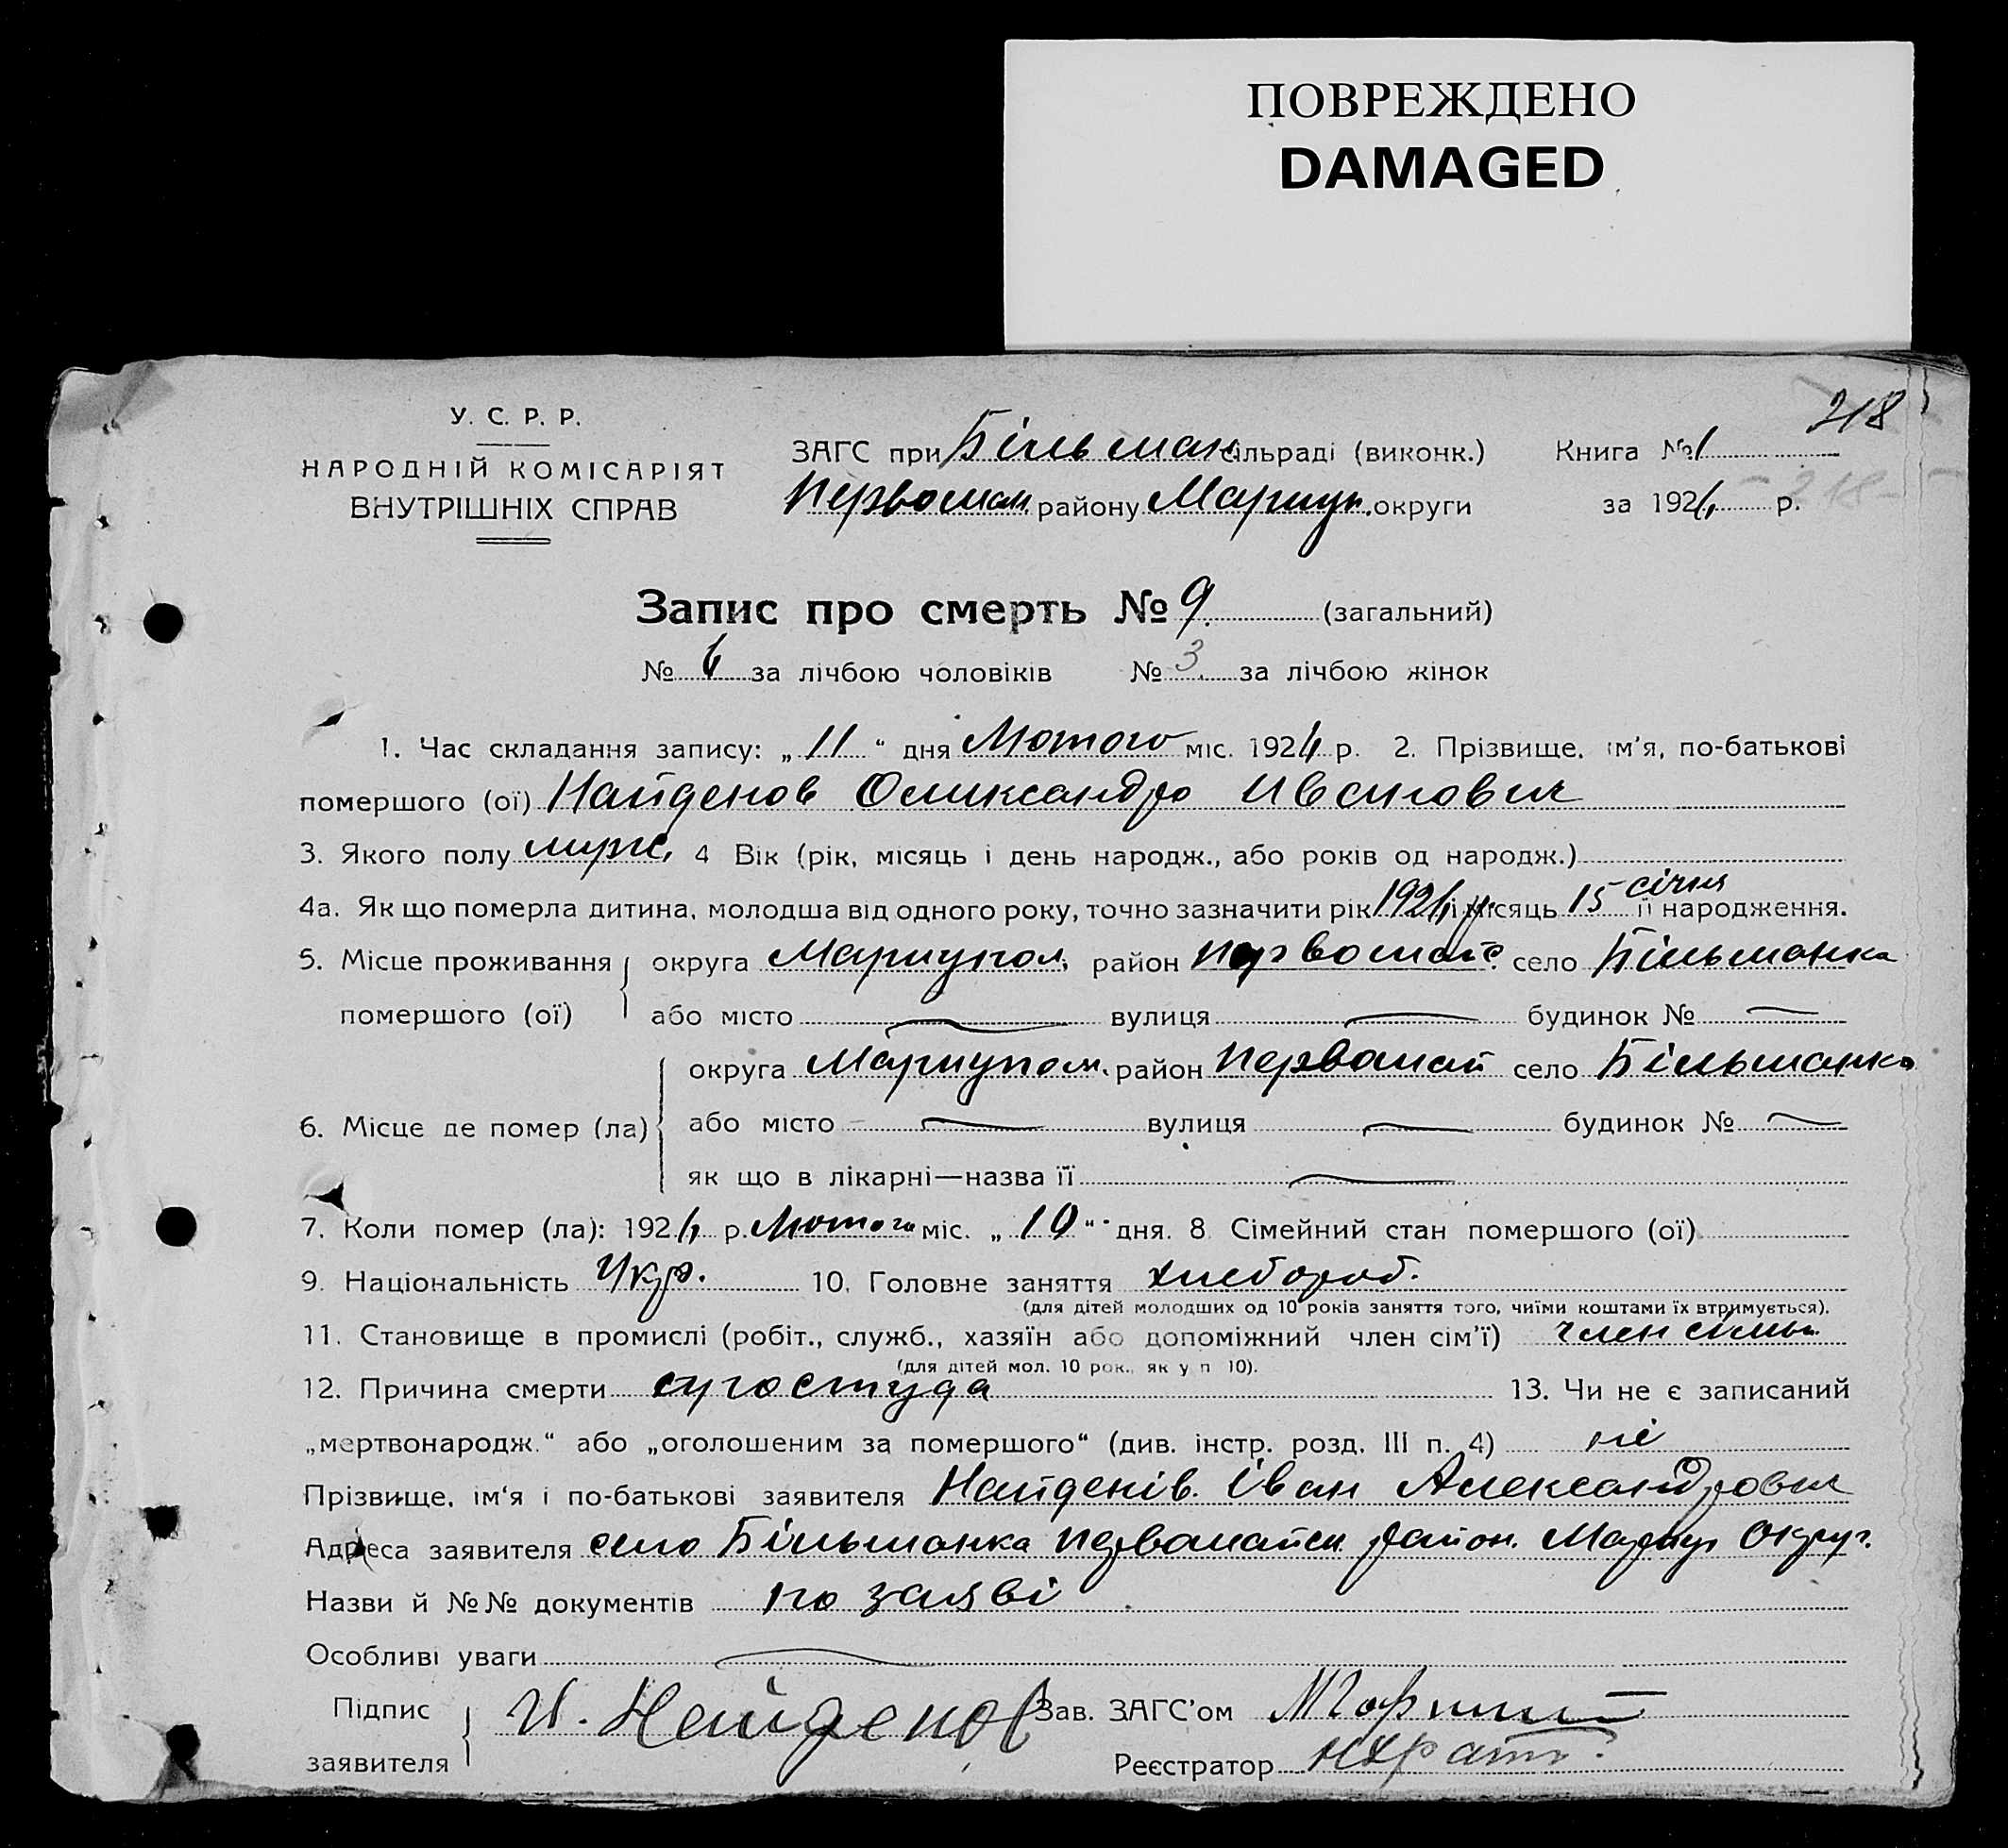 ПОВРЕЖДЕНО
DAMAGED
218
У. С. Р. Р.
НАРОДНІЙ КОМІСАРІЯТ
ВНУТРІШНІХ СПРАВ
ЗАГС при Більман сільраді (виконк.) Книга № 1
Первомай. району Маріуп. округи за 1924 р. - 218 -
Запис про смерть № 9. (загальний)
№ 6 за лічбою чоловіків № 3 за лічбою жінок
1. Час складання запису: „ 11 “ дня Лютого міс. 1924 р. 2. Прізвище, ім'я, по-батькові
помершого (ої) Найденов Олександро Иванович
3. Якого полу муж. 4 Вік (рік, місяць і день народж., або років од народж.)
4а. Як що померла дитина, молодша від одного року, точно зазначити рік 1924 р. і місяць 15 січня її народження.
5. Місце проживання округа Мариупол. район Первомайс. село Більманка
помершого (ої) або місто вулиця будинок №
округа Мариупол. район Первомай село Більманка
6. Місце де помер (ла) або місто вулиця будинок №
як що в лікарні—назва її
7. Коли помер (ла): 1924 р. Лютого міс. „ 10 “ дня. 8 Сімейний стан помершого (ої)
9. Національність Укр. 10. Головне заняття хлебороб.
(для дітей молодших од 10 років заняття того, чиїми коштами їх втримується).
11. Становище в промислі (робіт., служб., хазяїн або допоміжний член сім'ї) член сімьи
(для дітей мол. 10 рок., як у п 10).
12. Причина смерти 13. Чи не є записаний
„мертвонародж.“ або „оголошеним за помершого“ (див. інстр. розд. III п. 4) ні
Прізвище, ім'я і по-батькові заявителя Найденів. Іван Александрович
Адреса заявителя село Більманка Первомайск район. Мариуп Округ.
Назви й №№ документів по заяві
Особливі уваги
Підпис И. Найденов Зав. ЗАГС'ом
заявителя Реєстратор